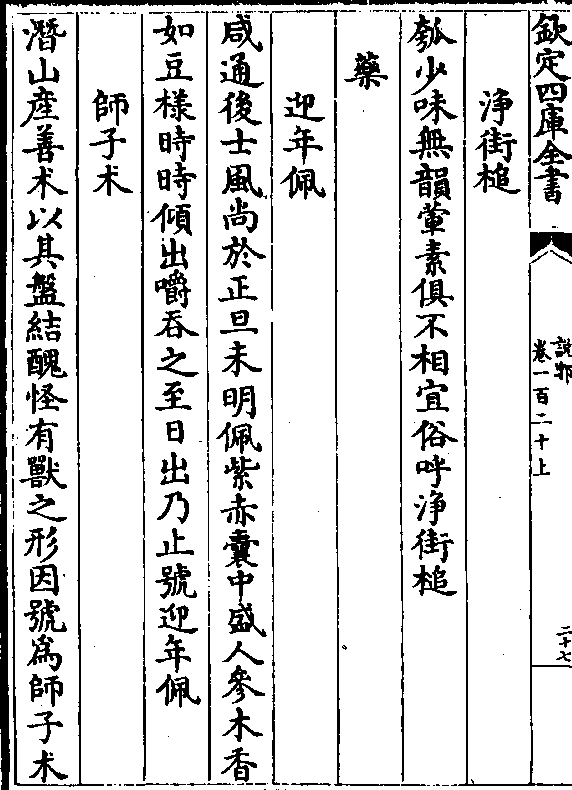 欽定四庫全書
說郛
卷一百二十上
二十七
淨街槌
瓠少味無韻葷素俱不相宜俗呼淨街槌
藥
迎年佩
咸通後士風尚於正旦未明佩紫赤囊中盛人參木香
如豆様時時傾出嚼吞之至日出乃止號迎年佩
師子术
潛山產善术以其盤結醜怪有獸之形因號為師子术